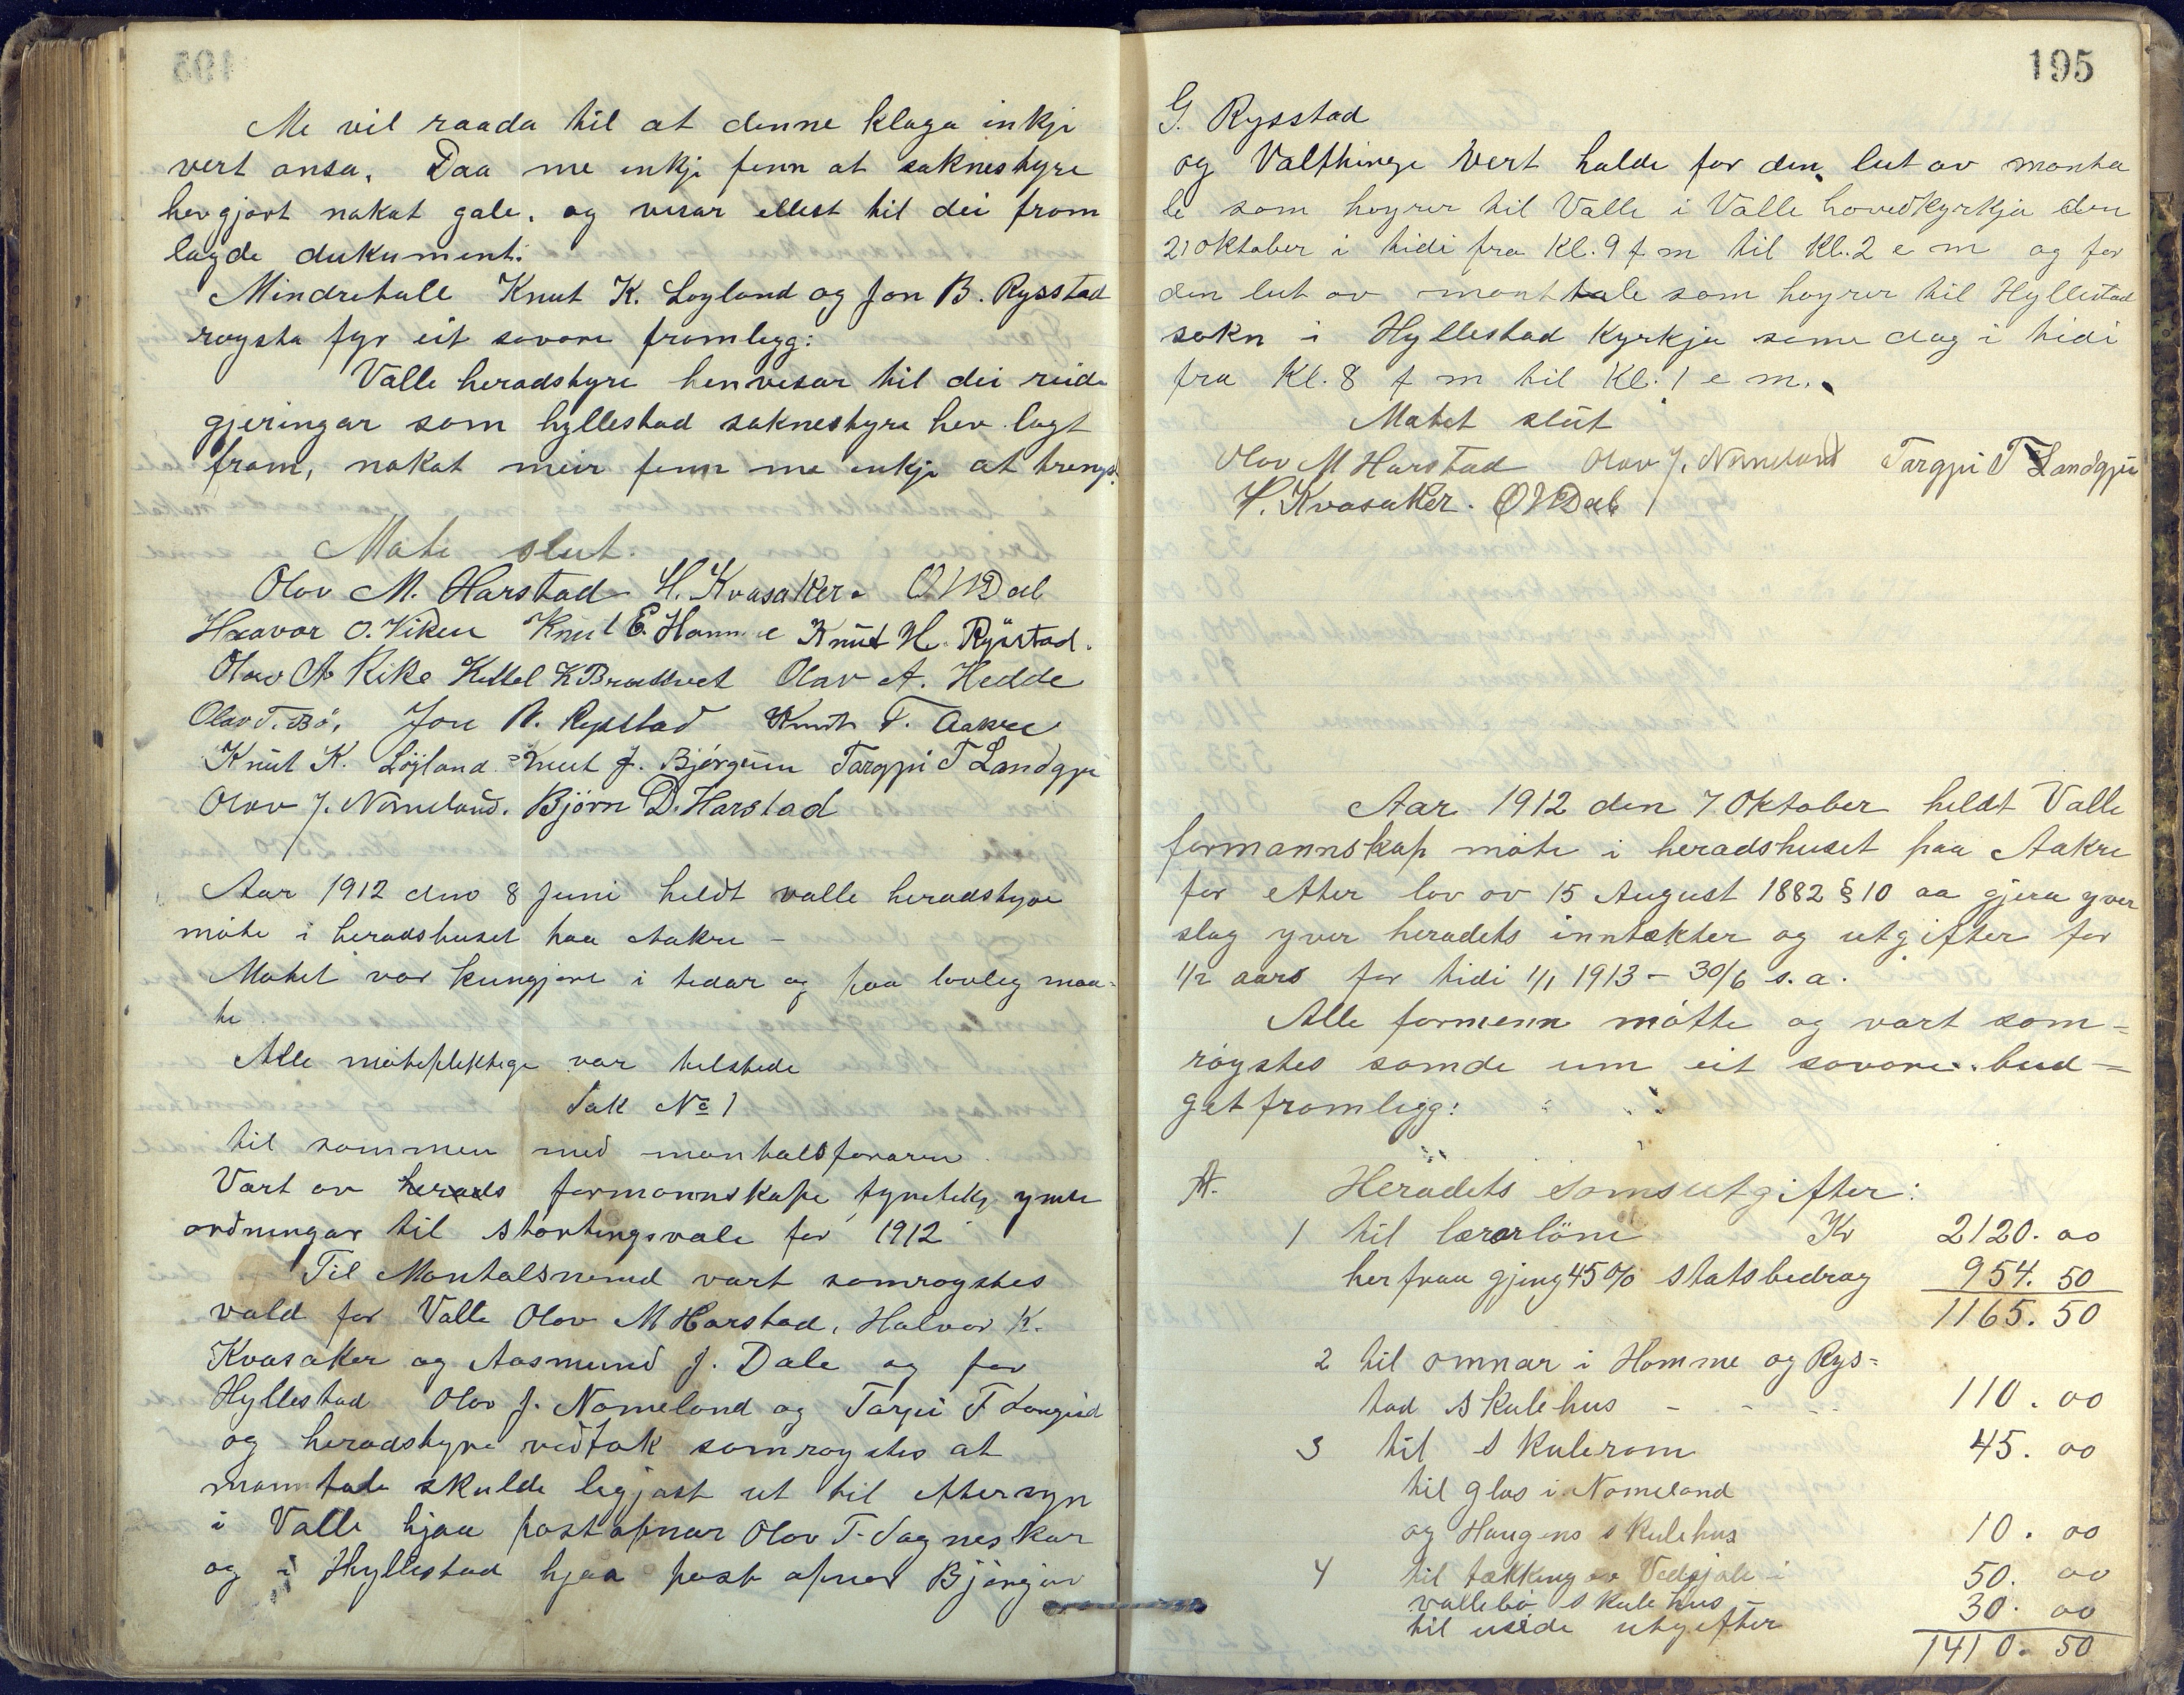 Me vil raada til at denne klaga inkje
vert ansa. Daa me inkje finn at soknestyre
hev gjort nokot gale. og visar ellest til dei from
lagde dukument.
Mindretalle Knut K. Loyland og Jon B. Rysstad
roysta fyr eit sovore fromlegg:
Valle heradstyre henvisar til dei
gjeringar som hyllestad soknestyre hev lagt
fram, nokot meir finn me inkje at trengs.
Møte slut.
Olov M. Harstad H. Kvasaker. O W Dal
O. Viken Knut E. Homme Knut H. Rysstad.
Olav A Rike Kittel K Bradtvet Olav A. Hedde
Olav T. Bø, Jon B. Rysstad Knut T. Aakre
Knut K. Löyland Knut J. Bjørgum Targjei T Landgjei
Olav J. Nomeland. Björn D. Harstad
Aar 1912 den 8 Juni heldt valle heradstyre
møte i heradshuset paa Aakre -
Møtet var kungjort i tedar og paa lovleg maa-
te
Alle møteplektige var telstede
Sak No 1
til sommen med montalsføraren
Vart av herads formannskape fyretekje ymse
ordningar til stortingsvale for 1912
Til Montalsnemd vart somroystes
vald for Valle Olov M Harstad, Halvor K.
Kvasaker og Aasmund J. Dale og for
Hyllestad Olov J. Nomeland og Targjei T Langeid
og heradstyre vedtok somroystes at
manntale skulde legjast ut til eftersyn
i Valle hjaa postopnar Olov T. Sagneskar
og i Hyllestad hjaa post opnar Bjørgüv
195
G. Rysstad
og Valthinge vert halde for den lut av monta
le som høyrer til Valle i Valle hovedkyrkja den
21 oktober i tidi fra Kl. 9 f m til Kl. 2 e m og for
den lut av monttale som høyrer til Hyllestad
sokn i Hyllestad Kyrkja same dag i tidi
fra Kl. 8 f m til Kl. 1 e m.
Møtet slut
Olov M Harstad Olav J. Nomeland Targjei T Landgjei
H. Kvasaker. O W Dal
Aar 1912 den 7 Oktober heldt Valle
formannskap møte i heradshuset paa Aakre
for etter lov ov 15 August 1882 § 10 aa gjera yver
slag yver heradets inntækter og utgifter for
1/2 aars for tidi 1/1 1913 - 30/6 s. a.
Alle formenn møtte og vart som-
røystes samde um eit sovore bud-
getfromlegg:
A. Heradets Somsutgifter:
1 til lærarløni Kr 2120. 00
herfraa gjeng 45% statsbedrag 954. 50
1165. 50
2 til omnar i Homme og Rys-
tad Skulehus - - - 110. 00
3 til Skulerom 45. 00
til glas i Nomeland
og Haugens skulehus 10. 00
4 til tækking av Vedsjale i 50. 00
vallebø Skulehus 30. 00
til utgifter
1410. 50